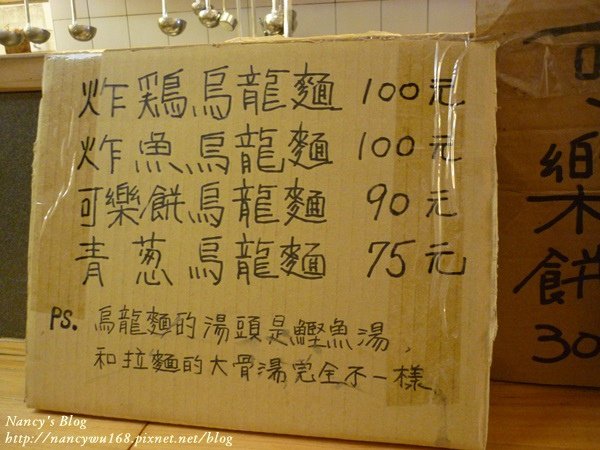 炸鶏烏龍麵 100元
炸魚烏龍麵 100元
可樂餅烏龍麵 90元
青葱烏龍麵 75元
PS. 烏龍麵的湯頭是鰹魚湯,
和拉麵的大骨湯完全不一樣
可樂餅
30
Nancy's Blog
http://nancywu168.pixnet.net/blog